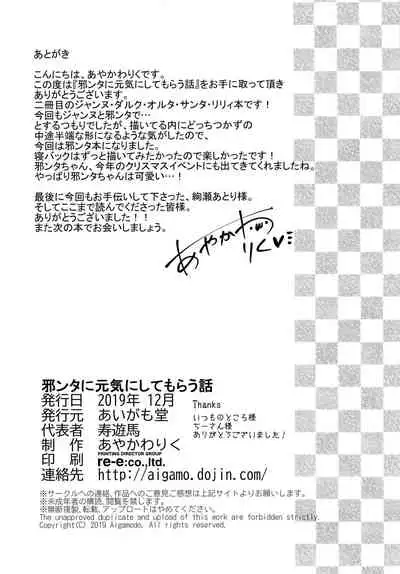 あとがき
こんにちは、あやかわりくです。
この度は『邪ンタに元気にしてもらう話』をお手に取って頂き
ありがとうございます。
二冊目のジャンヌ・ダルク・オルタ・サンタ・リリィ本です！
今回もジャンヌと邪ンタで…
とするつもりでしたが、描いてる内にどっちつかずの
中途半端な形になるような気がしたので、
今回は邪ンタ本になりました。
寝バックはずっと描いてみたかったので楽しかったです！
邪ンタちゃん、今年のクリスマスイベントにも出てきてくれましたね。
やっぱり邪ンタちゃんは可愛い…！
最後に今回もお手伝いして下さった、絢瀬あとり様。
そしてここまで読んでくださった皆様。
ありがとうございました！！
また次の本でお会いしましょう。
あやかわりく
邪ンタに元気にしてもらう話
発行日 2019年 12月
発行元 あいがも堂
代表者 寿遊馬
制 作 あやかわりく
PRINTING DIRECTOR GROUP
印 刷 re-e:co.,ltd.
連絡先 http://aigamo.dojin.com/
Thanks
いつものところ様
ちーさん様
ありがとうございました！
※サークルへの連絡、作品へのご意見ご感想は上記サイトよりお願いします。
※未成年者の購読、閲覧を禁じます。
※無断複製、転載、アップロードはやめてください。
The unapproved duplicate and upload of this work are forbidden strictly.
Copyright(C) 2019 Aigamodo. All rights reserved.